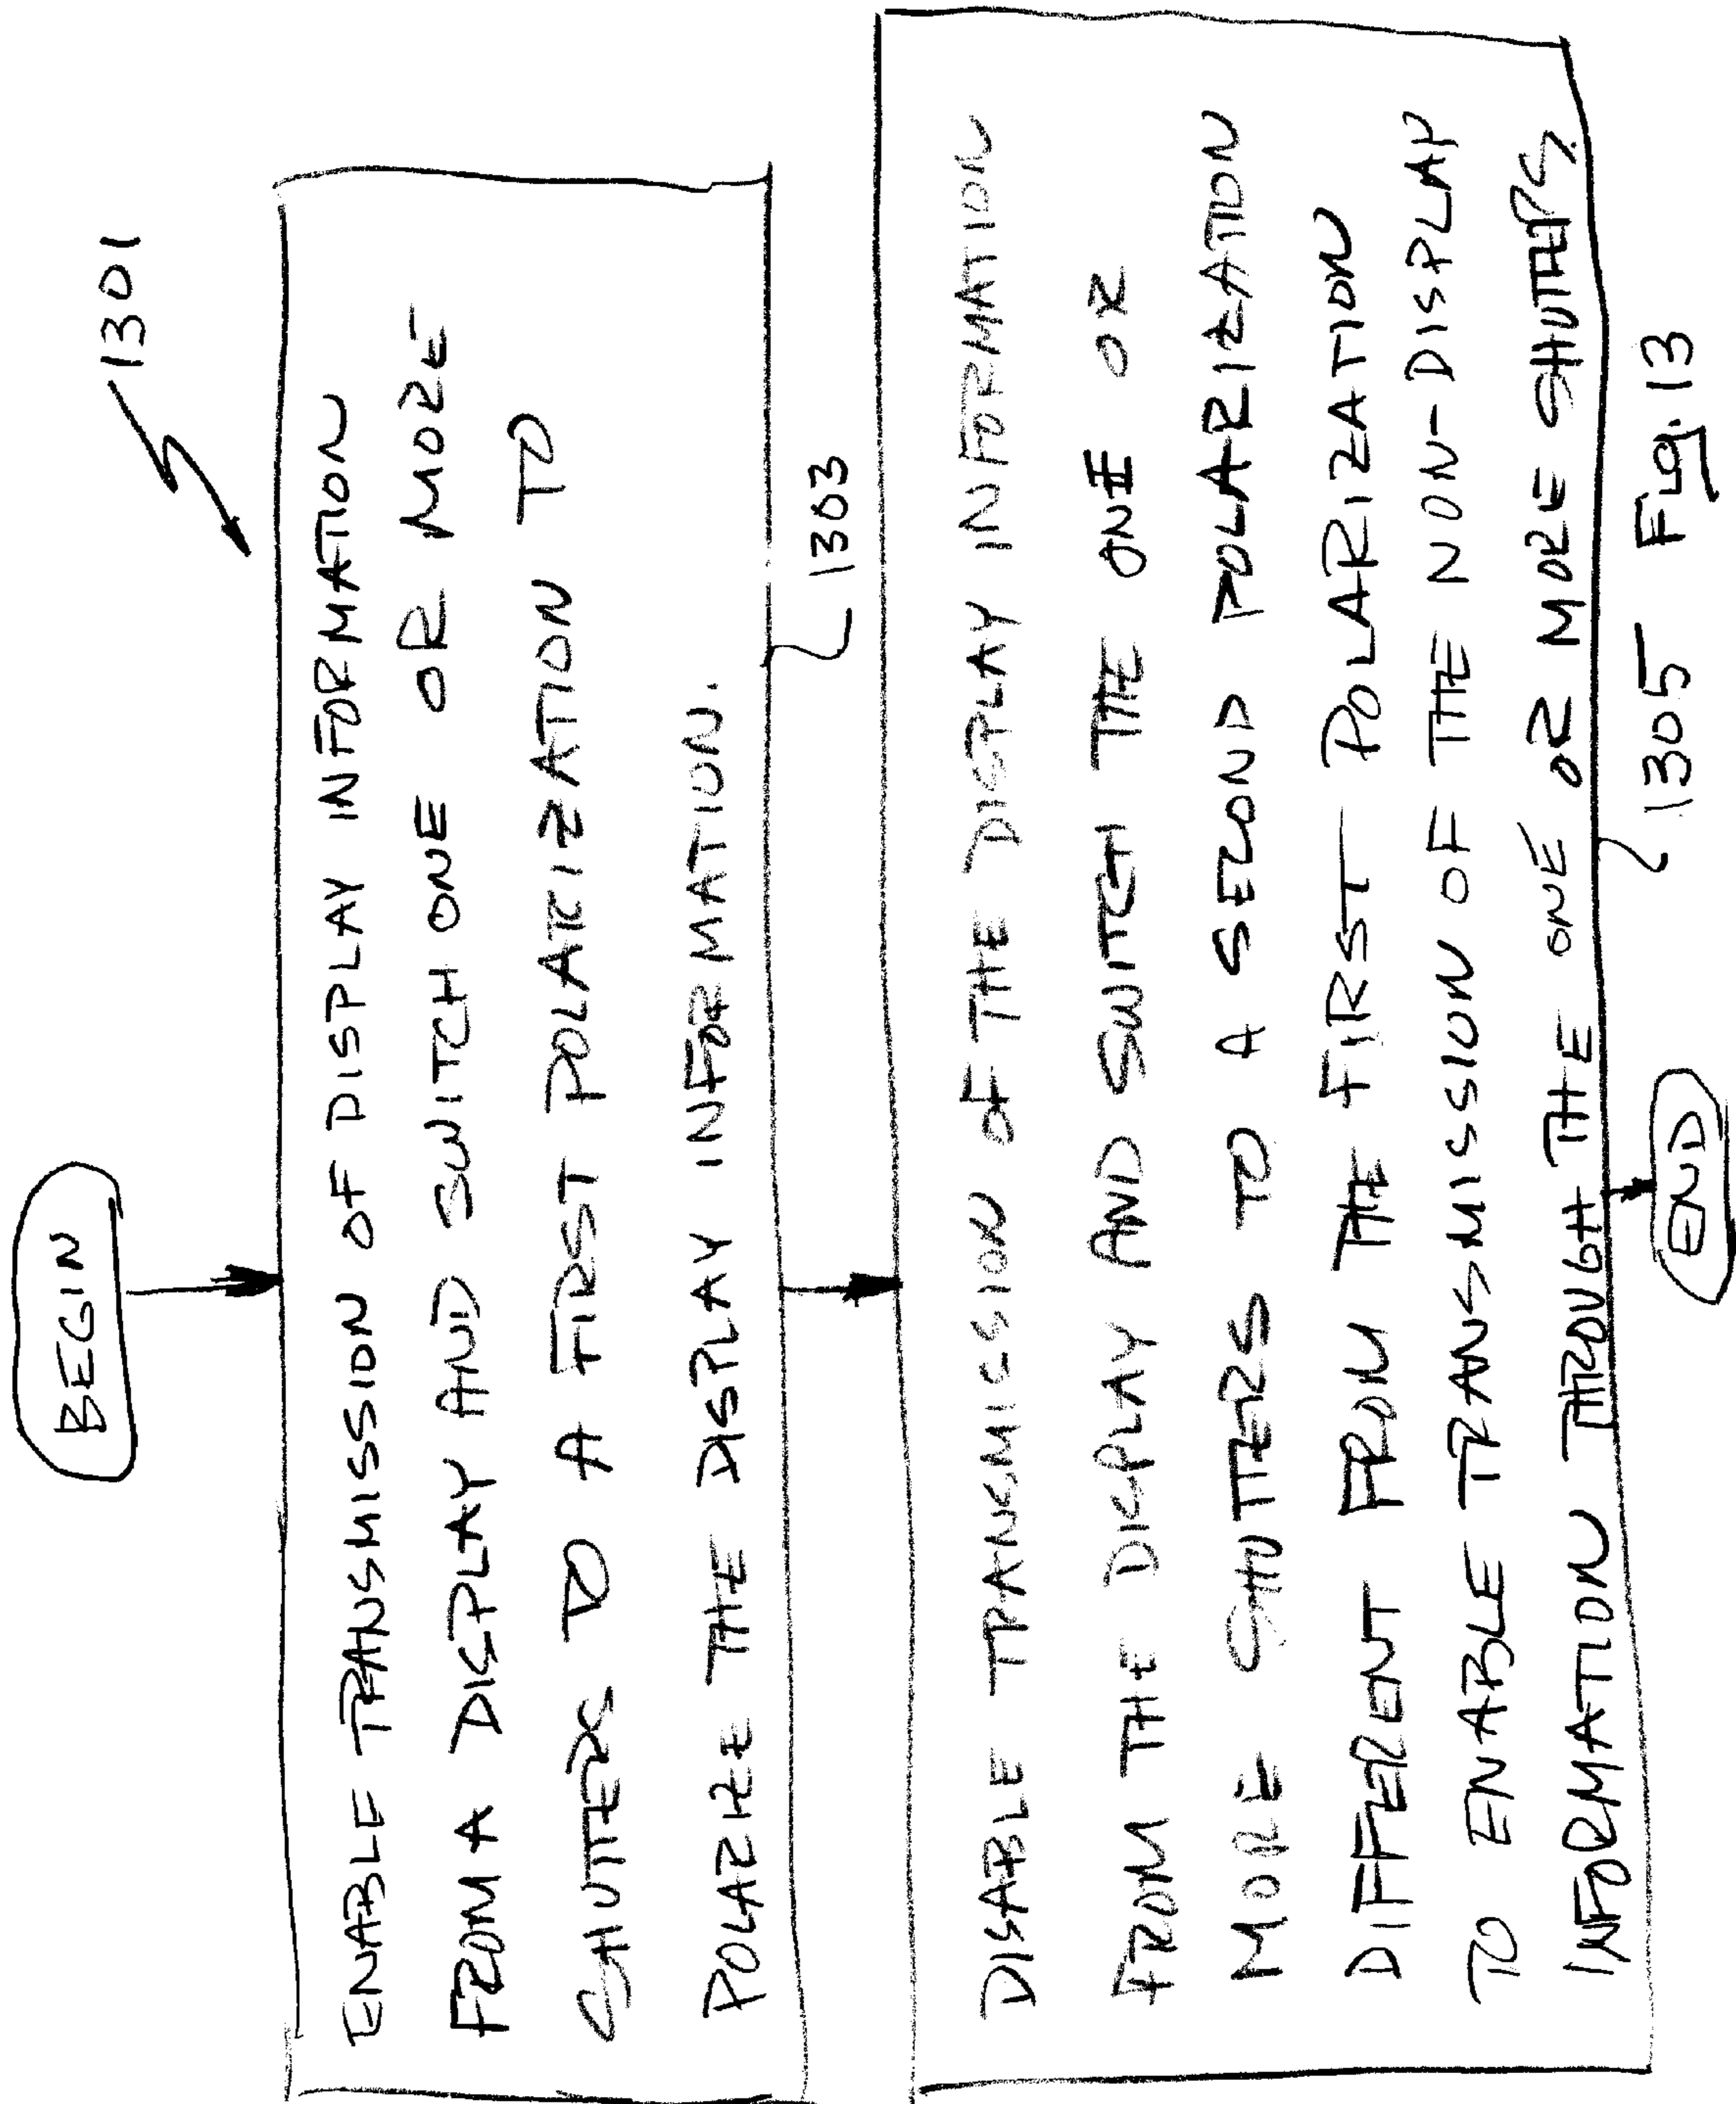 1301
BEGIN
ENABLE TRANSMISSION OF DISPLAY INFORMATION
FROM A DISPLAY AND SWITCH ONE OR MORE
SHUTTERS TO A FIRST POLARIZATION TO
POLARIZE THE DISPLAY INFORMATION.
1303
DISABLE TRANSMISSION OF THE DISPLAY INFORMATION
FROM THE DISPLAY AND SWITCH THE ONE OR
MORE SHUTTERS TO A SECOND POLARIZATION
DIFFERENT FROM THE FIRST POLARIZATION
TO ENABLE TRANSMISSION OF THE NON-DISPLAY
INFORMATION THROUGH THE ONE OR MORE SHUTTERS.
1305
END
Fig. 13